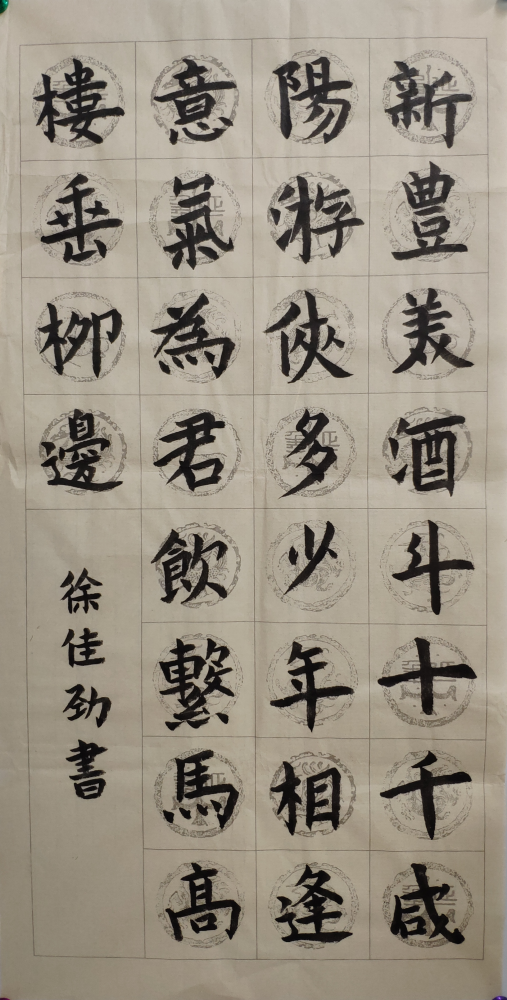 新豊美酒斗十千咸
陽游俠多少年相逢
意氣為君飲繫馬高
樓垂柳邊
徐佳劲書